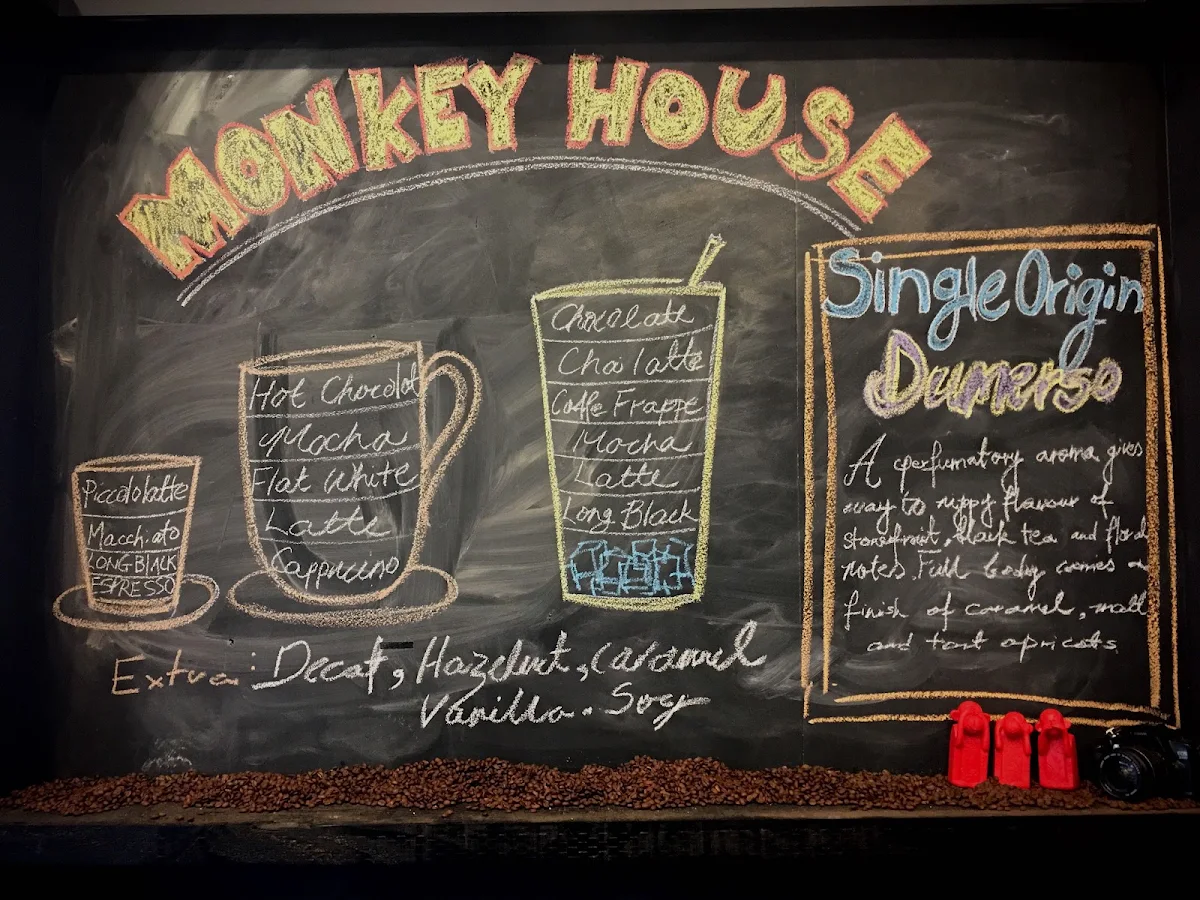 MONKEY HOUSE
Piccolo latte
Macchiato
LONG BLACK
ESPRESSO
Hot Chocolat
Mocha
Flat White
Latte
Cappucino
Chocolate
Chai latte
Coffe Frappe
Mocha
Latte
Long Black
Extra: Decaf, Hazelnut, caramel
Vanilla. Soy
Single Origin
Dumerso
A perfumatory aroma gives
way to zippy flavour of
stonefruit, black tea and floral
notes. Full body comes
finish of caramel, malt
and tart apricots